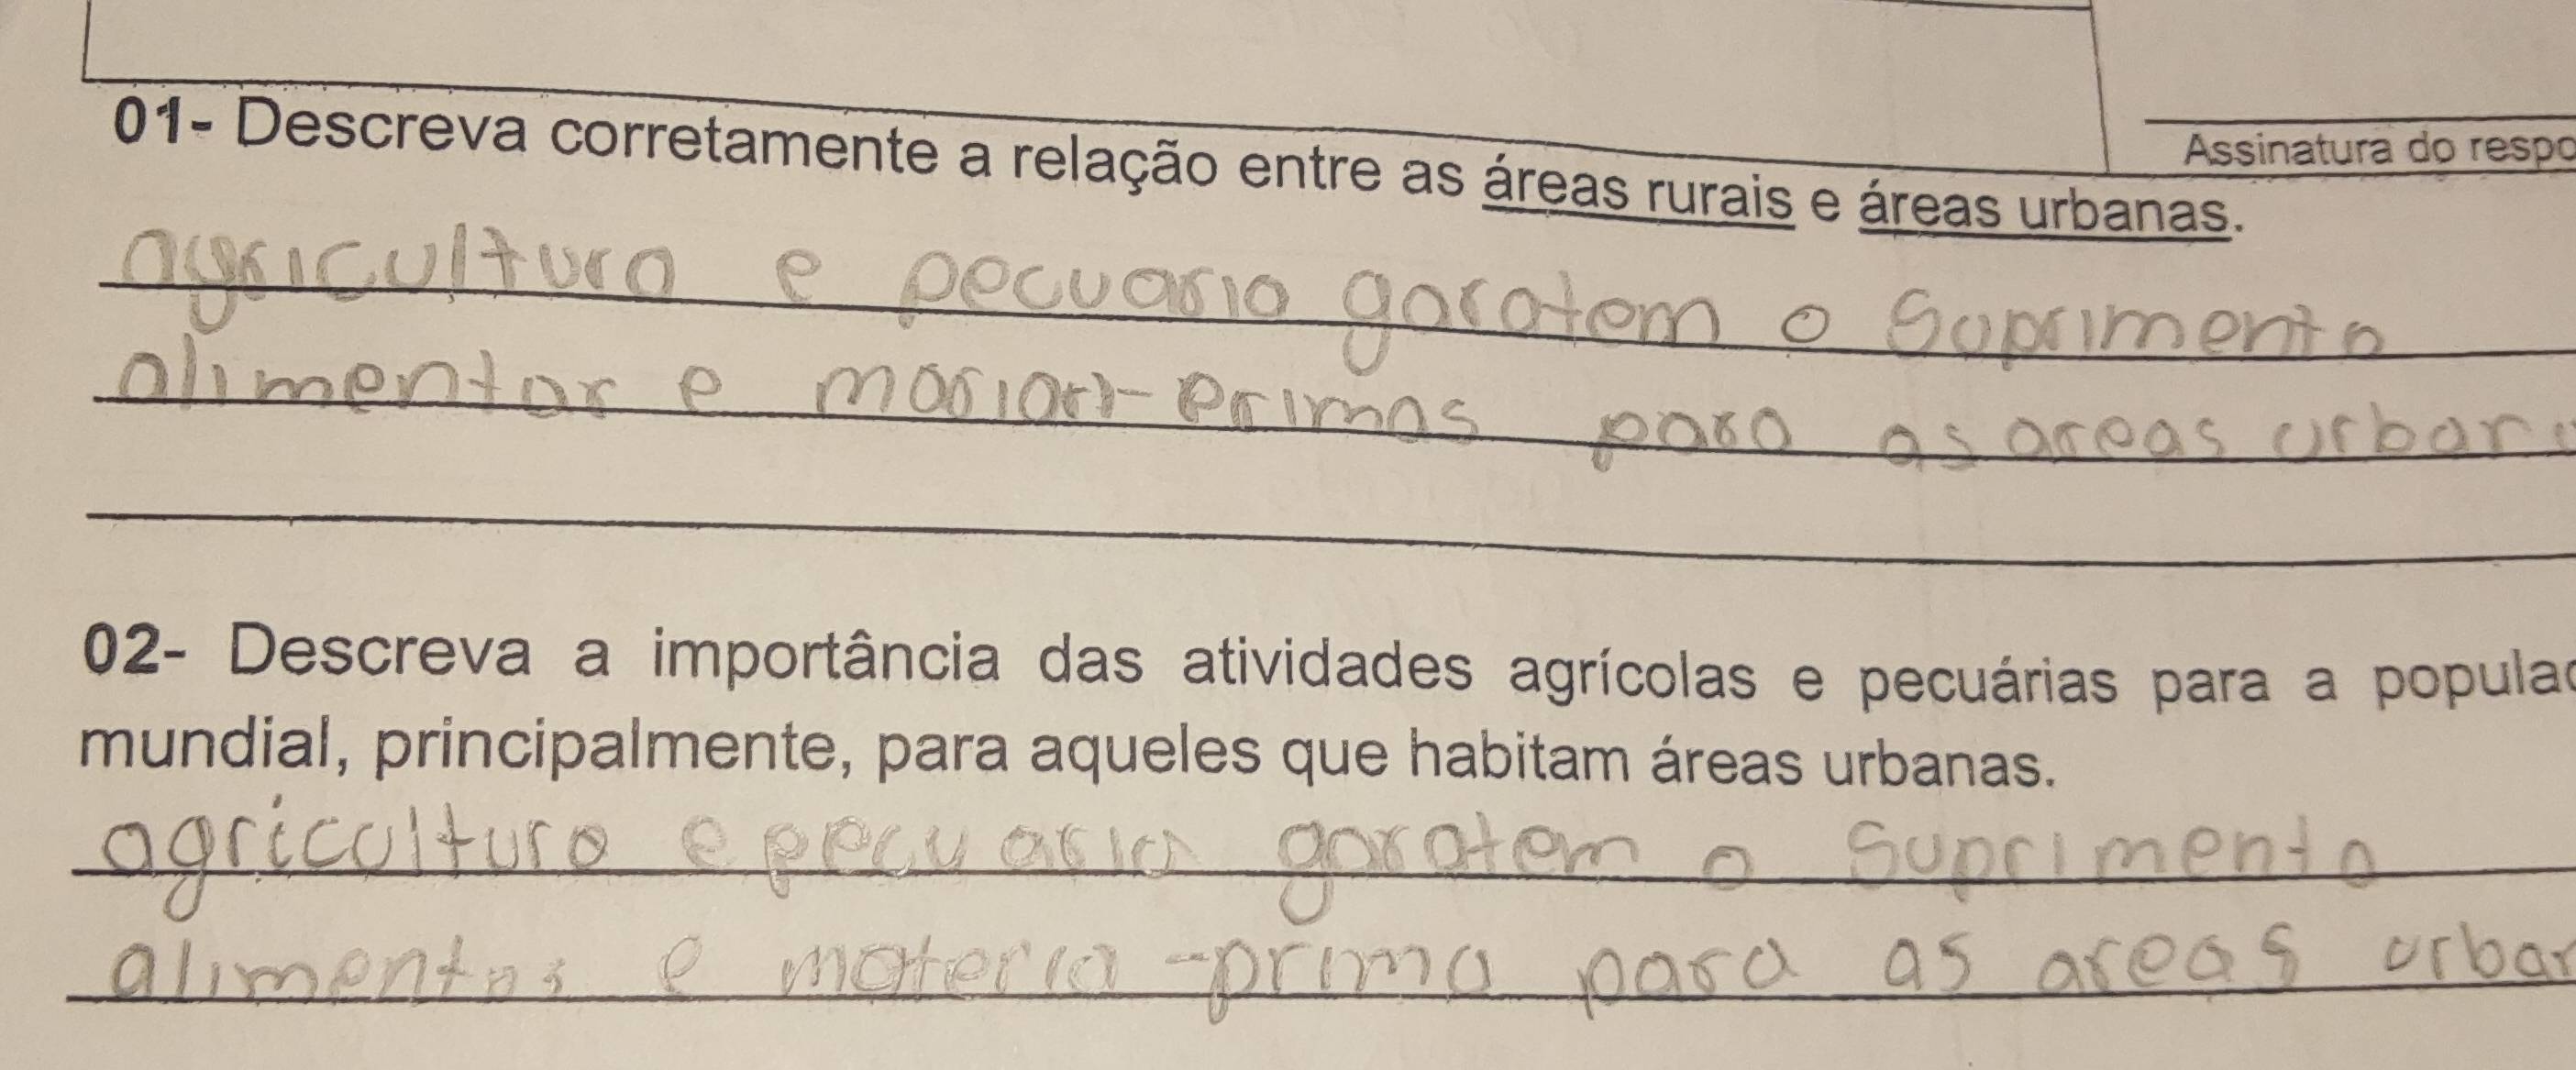 Assinatura do respo
01- Descreva corretamente a relação entre as áreas rurais e áreas urbanas.
agricultura e pecuaria garatem o Suprimento
alimentar e primas para as areas urbana
02- Descreva a importância das atividades agrícolas e pecuárias para a populaç
mundial, principalmente, para aqueles que habitam áreas urbanas.
agricultura e pecuaria garatem o Suprimento
alimentos e materia-prima para as areas urban